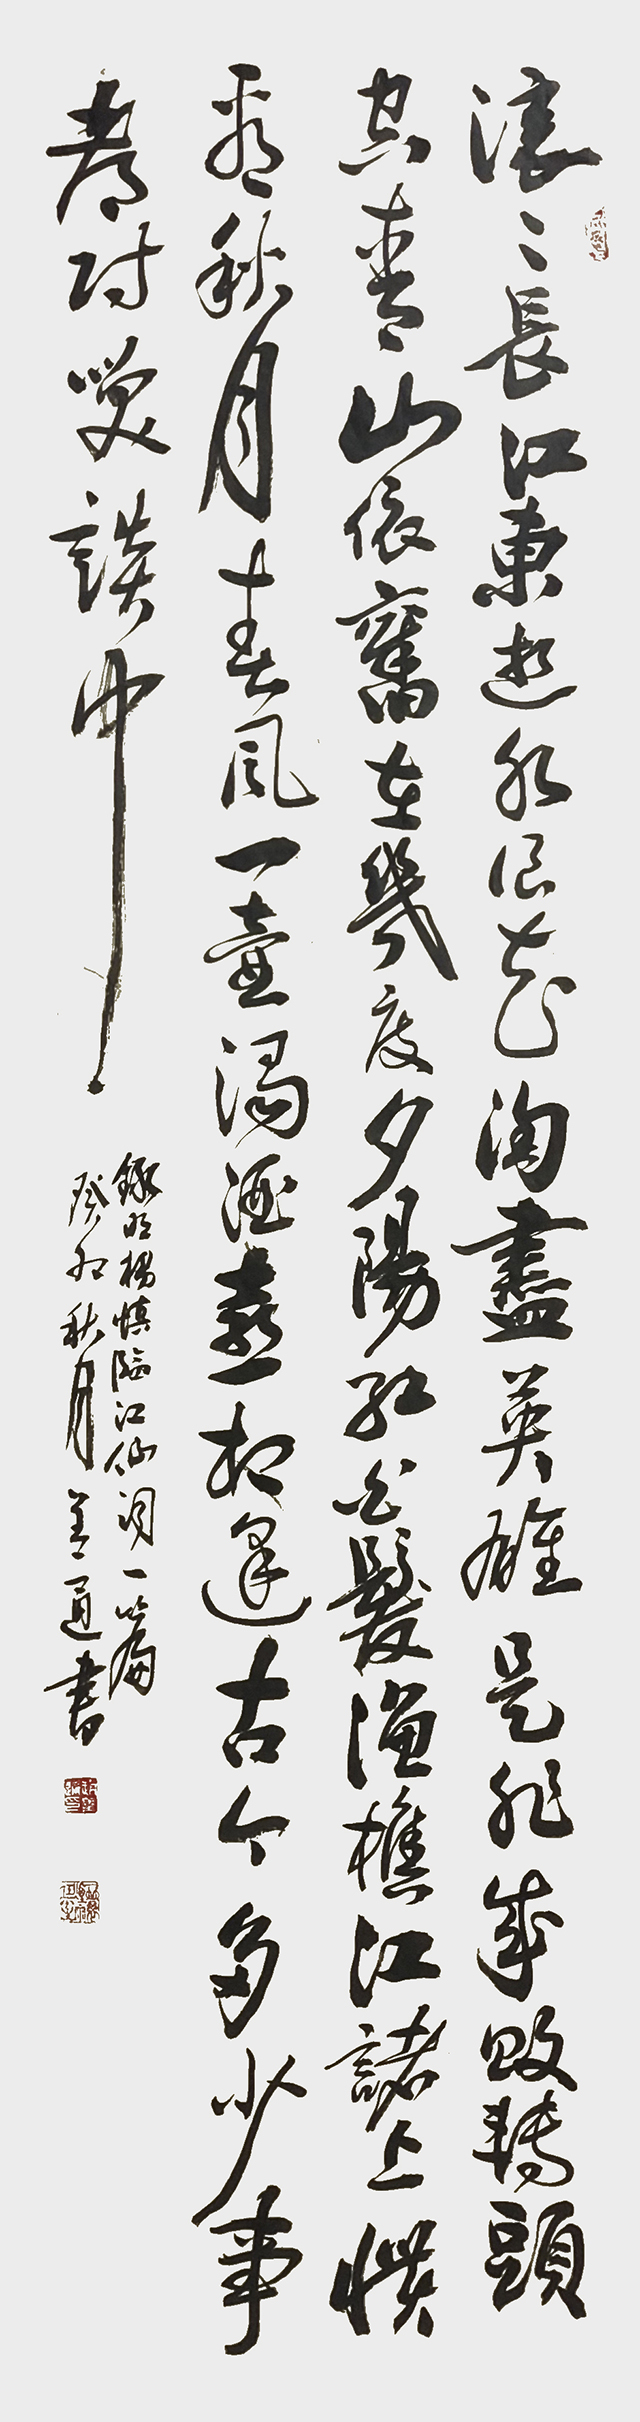 滾〻長江東逝水浪花淘盡英雄是非成敗轉頭
空青山依舊在幾度夕陽紅白髮漁樵江諸上慣
看秋月春風一壺濁酒喜相逢古今多少事
都付笑談中
錄明楊慎臨江仙詞一篇
癸卯秋月善通書